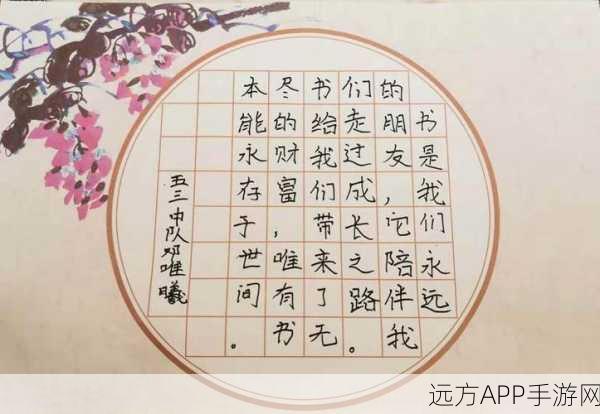 书是我们永远
的朋友,它陪伴我
们走过成长之路。
书给我们带来了无
尽的财富,唯有书
本能永存于世间。
五三中队邓唯曦
远方APP手游网